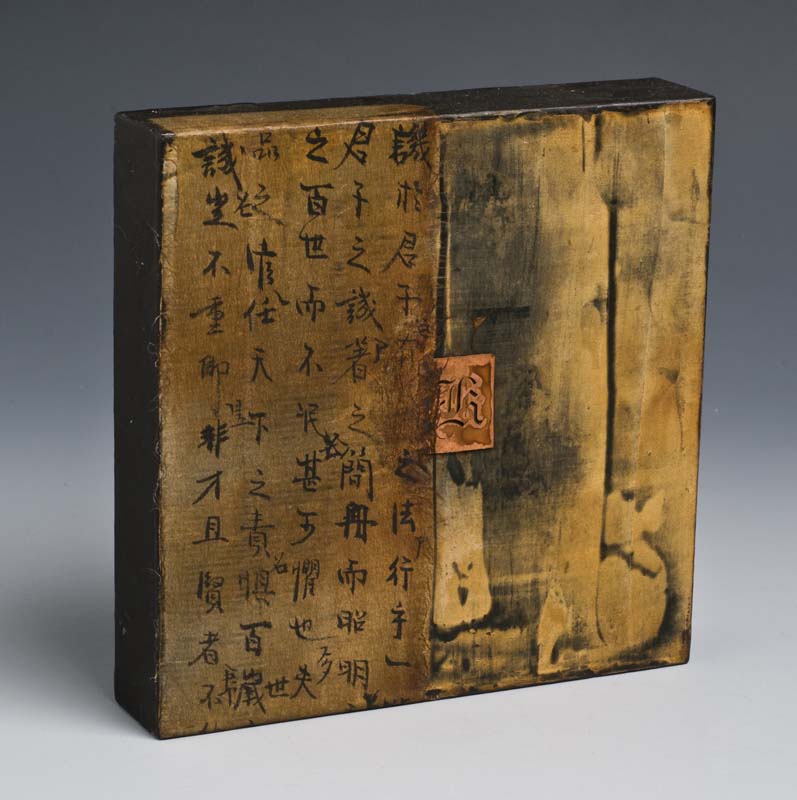 譏於君子之法行乎一
君子之譏著之簡冊而昭明
之百世而不泯甚可懼也夫
品之官任天下之責懼百歲
譏豈不重耶非才且賢者不